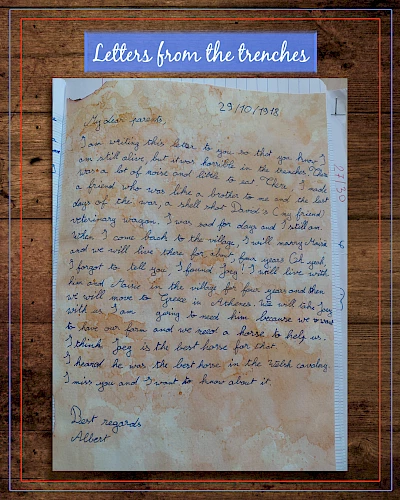 Letters from the trenches
29/10/1918
My dear parents,
I am writing this letter to you so that you know I
am still alive, but it was horrible in the trenches. There
was a lot of noise and little to eat. There I made
a friend who was like a brother to me and the last
days of the war, a shell shot David's (my friend)
veterinary wagon. I was sad for days and I still am.
When I come back to the village, I will marry Marie
and we will live there for about four years. Oh yeah,
I forgot to tell you, I found Joey! I will live with
him and Marie in the village for four years and then
we will move to Greece in Athenes. We will take Joey
with us. I am going to need him because we want
to have our farm and we need a horse to help us.
I think Joey is the best horse for that.
I heard he was the best horse in the Welsh cavalry.
I miss you and I want to know about it.
Best regards
Albert